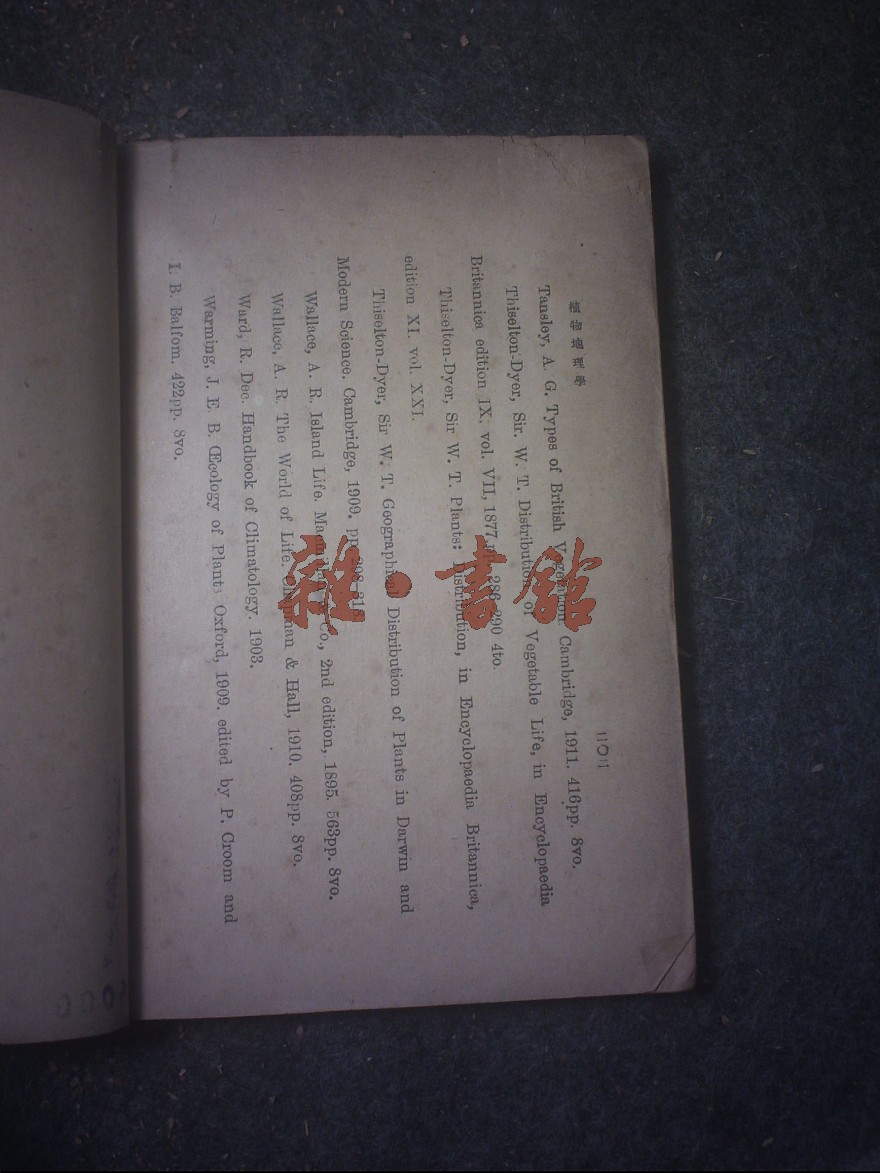 植物地理學
二〇二
Tansley, A. G. Types of British Vegetation Cambridge, 1911. 416pp. 8vo.
Thiselton-Dyer, Sir. W. T. Distribution of Vegetable Life, in Encyclopaedia
Britannica edition IX. vol. VII, 1877. 286-290 4to.
Thiselton-Dyer, Sir W. T. Plants: Distribution, in Encyclopaedia Britannica,
edition XI. vol. XXI.
Thiselton-Dyer, Sir W. T. Geographical Distribution of Plants in Darwin and
Modern Science. Cambridge, 1909. pp.
Wallace, A. R. Island Life. Co., 2nd edition, 1895. 563pp. 8vo.
Wallace, A. R. The World of Life. Chapman & Hall, 1910. 408pp. 8vo.
Ward, R. Dec. Handbook of Climatology. 1903.
Warming, J. E. B. Œcology of Plants Oxford, 1909. edited by P. Croom and
I. B. Balfom. 422pp. 8vo.